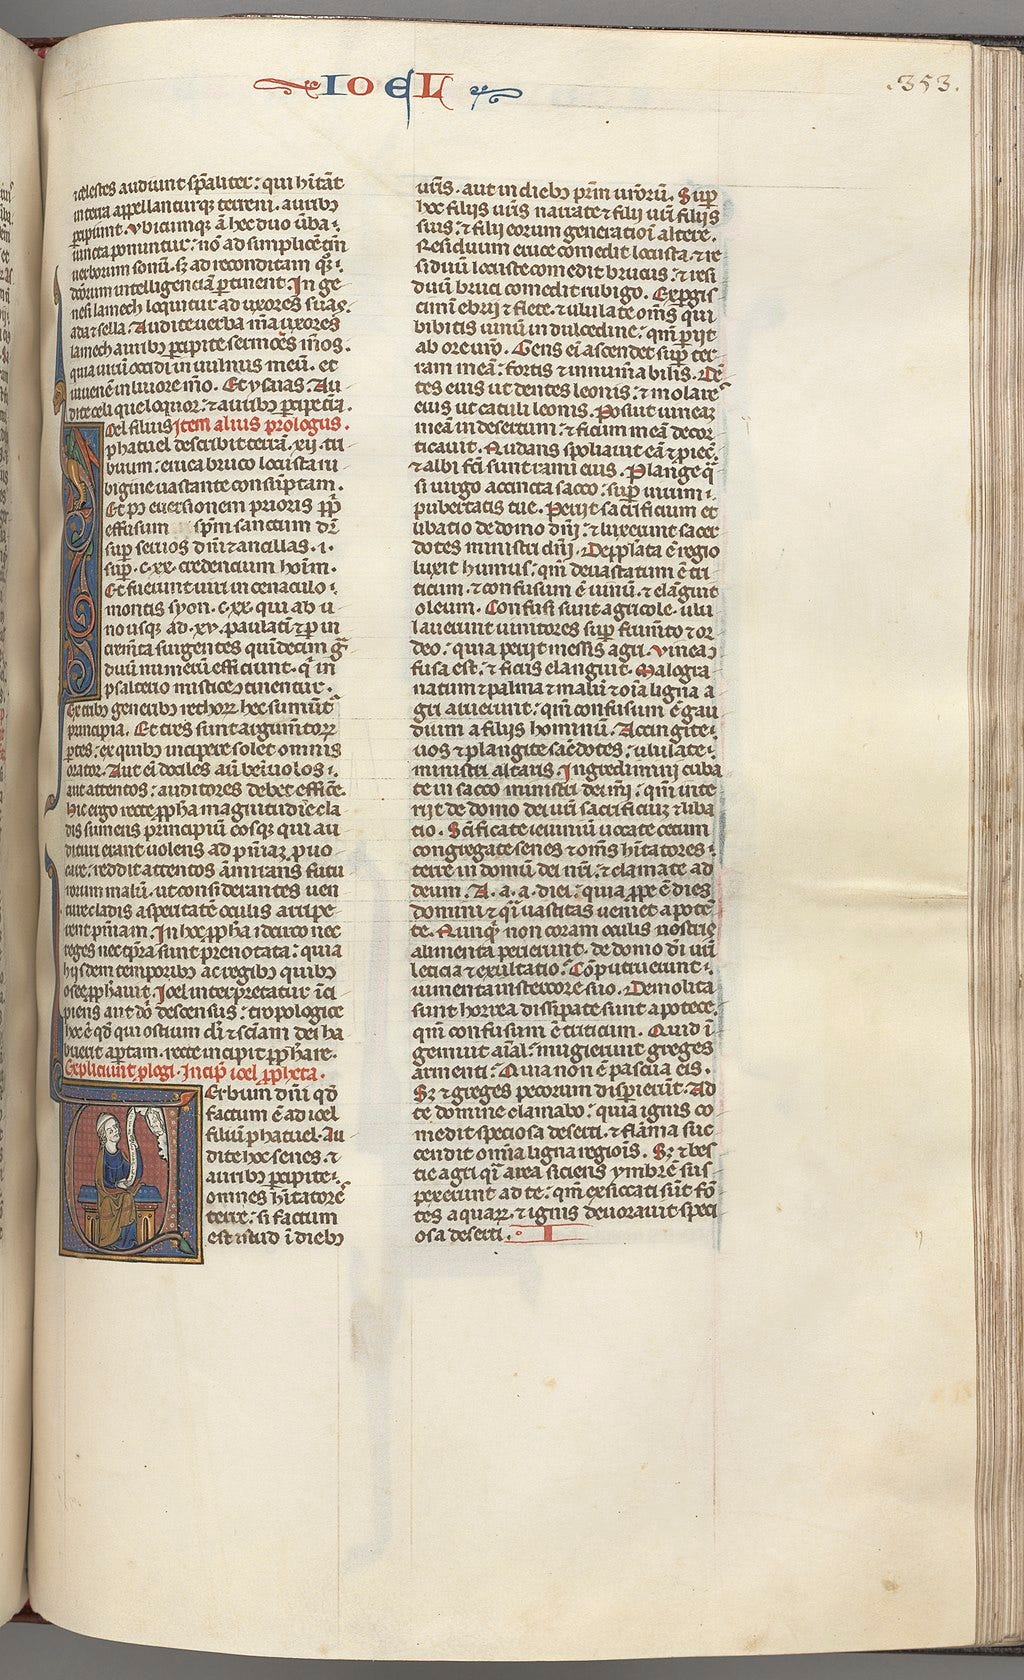 IOEL
.353.
⁊celestes audiunt sp̄aliter: qui hītāt
in terra appellantur q̄ terreni. auribꝫ
ꝑcipiunt. Vbicumq̄ ā hec duo ūba
iuncta ponuntur: nō ad simplicē tm̄
uerborum sonū. sꝫ ad reconditam
dictorum intelligenciā ꝑtinent. In ge
nesi lamech loquitur ad uxores suas.
ada ⁊ sella. Audite uerba m̄a uxores
lamech auribꝫ ꝑcipite sermones m̄os.
quia uirū occidi in uulnus meū. et
iuuenē in liuore m̄o. Et ysaias. Au
dite celi que loquor: ⁊ auribꝫ ꝑcipe t̄ra.
Ioel filius Item alius prologus.
phatuel describit terrā .xii. tri
buum: eruca bruco locusta ru
bigine uastante consūptam.
Et pꝰ euersionem prioris pp̄
effusum sp̄m sanctum dr̄
suꝑ seruos dn̄i ⁊ ancillas. .i.
suꝑ .c.xx. credencium hoīm.
Et fuerunt uiri in cenaculo
montis syon .c.xx. qui ab u
no usq̄ ad .xv. paulatī ⁊ ꝑ in
crem̄ta surgentes quīdecim g̃
duū numerū efficiunt. q̄ in
psalterio mistice ꝯtinentur.
Ex tribꝫ generibꝫ rethoꝝ hec sumūt̄
principia. Et tres sunt argum̄toꝝ
ꝑtes: ex quibꝫ incipere solet omnis
orator. Aut eī dociles aū beīuolos
aut attentos: auditores debet efficē.
hic ergo recte ꝓpha magnitudīe cla
dis sumens principiū eosq̄ qui au
dituri erant uolens ad pn̄iaꝫ ꝓuo
care: reddit attentos āmirans futu
rorum malū. ut considerantes uen
ture cladis asperitatē oculis arripe
rent pn̄iam. In hoc ꝓpha idcirco nec
reges nec tp̄ra sunt prenotata: quia
hijsdem temporibꝫ ac regibꝫ quibꝫ
osee ꝓphauit. Ioel interpretatur īci
piens aut dō descensus: tropologice
hoc ē qd̄ qui ostium dī ⁊ sciam dei ha
buerit aꝑtam. recte incipit ꝓphare.
Expliciunt ꝓlogi. Incip̄ ioel ꝓpheta.
Verbum dn̄i qd̄
factum ē ad ioel
filiū phatuel. Au
dite hoc senes. ⁊
auribꝫ ꝑcipite
omnes hītatores
terre: si factum
est istud ī diebꝫ
ur̄is. aut in diebꝫ prm̄ uroꝝū. Suꝑ
hoc filijs ur̄is narrate ⁊ filij ur̄i filijs
suis: ⁊ filij eorum generatioī altere.
Residuum eruce comedit locusta. ⁊ re
siduū locuste comedit brucus: ⁊ resi
duū bruci comedit rubigo. Expgis
cimī ebrij ⁊ flete. ⁊ ululate om̄s qui
bibitis uinū in dulcedine: qm̄ ꝑijt
ab ore ur̄o. Gens eī ascendet suꝑ ter
ram meā: fortis ⁊ innumerabilis. Dē
tes eius ut dentes leonis: ⁊ molares
eius ut catuli leonis. Posuit uineaꝫ
meā in desertum: ⁊ ficum meā decor
ticauit. Nudans spoliauit eā ⁊ ꝓiec̄:
⁊ albi fc̄i sunt rami eius. Plange q̄
si uirgo accincta sacco: suꝑ uirum
pubertatis tue. Perijt sacrificium et
libatio de domo dn̄i: ⁊ luxerunt sacer
dotes ministri dn̄i. Depp̄lata ē regio
luxit humus: qm̄ deuastatum ē tri
ticum. ⁊ confusum ē uinū. ⁊ elāguit
oleum. Confusi sunt agricole. ulu
lauerunt uinitores suꝑ frum̄to ⁊ or
deo: quia perijt messis agri. Vineaꝫ
fusa est: ⁊ ficus elanguit. Malogra
natum ⁊ palma ⁊ malū ⁊ oīa ligna a
gri aruerunt: qm̄ confusum ē gau
dium a filijs hominū. Accingite
uos ⁊ plangite sac̄dotes: ululate
ministri altaris. Ingredimini cuba
te in sacco ministri dei m̄i: qm̄ inte
rijt de domo dei ur̄i sacrificiuꝫ ⁊ liba
tio. Sc̄ificate ieiuniū uocate cetum
congregate senes ⁊ om̄s hītatores
terre in domū dei nr̄i: ⁊ clamate ad
deum. A. a. a. diei: quia ꝓpe ē dies
domini ⁊ qī uastitas ueniet a potē
te. Nunq̄ non coram oculis nostris
alimenta perierunt. de domo dī nr̄i
leticia ⁊ exultatio. Cōputruerunt
iumenta in stercore suo. Demolita
sunt horrea dissipate sunt apotece.
qm̄ confusum ē triticum. Quid ī
gemuit aīal: mugierunt greges
armenti: Quia non ē pascua eis.
Sꝫ ⁊ greges pecorum dispierūt. Ad
te domine clamabo: quia ignis co
medit speciosa deserti. ⁊ flāma suc
cendit omīa ligna regiōis. Sꝫ ⁊ bes
tie agri qī area siciens ymbrē sus
pexerunt ad te: qm̄ exsiccati sūt fō
tes aquaꝝ. ⁊ ignis deuorauit speci
osa deserti. I